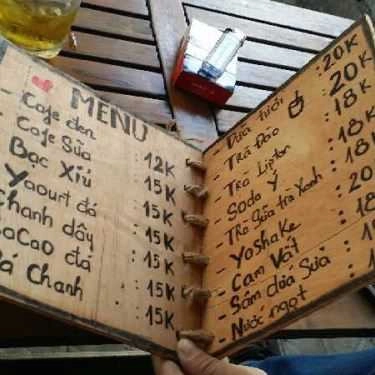 MENU
- Cafe đen : 12K
- Cafe Sữa : 15K
Bạc Xỉu : 15K
Yaourt đá : 15K
Chanh dây : 15K
CaCao đá : 15K
Đá Chanh : 15K
- Dừa tươi : 20K
- Trà Đào : 20K
- Trà Lipton : 18K
- Soda Ý : 18K
- Trà Sữa trà Xanh : 18K
- Yoshake : 20
- Cam Vắt : 18
- Sâm dứa Sữa : 1
- Nước ngọt :